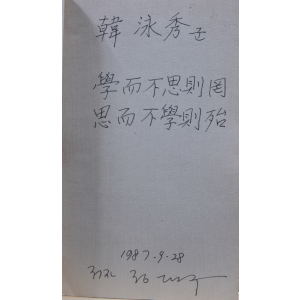 韓 泳秀
學而不思則罔
思而不學則殆
1987.9.28